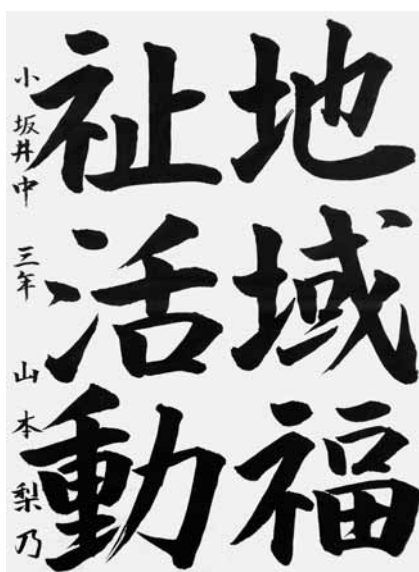 地域福
祉活動
小坂井中 三年 山本梨乃